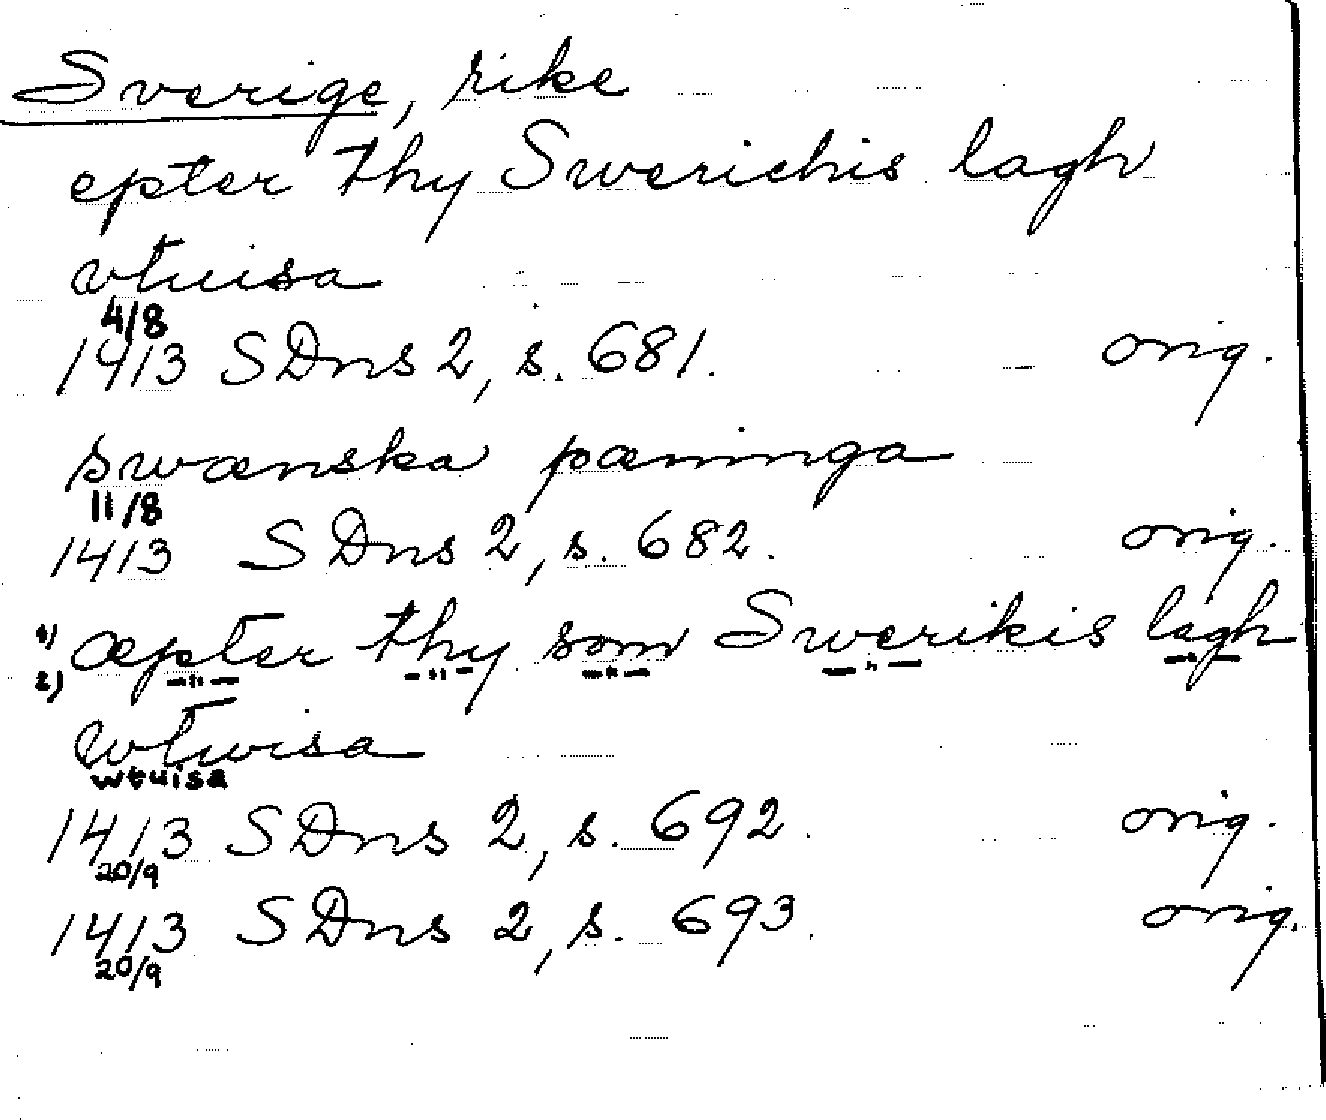 Sverige, rike
epter thy Swerichis lagh
vtuisa
4/8
1413 SDns 2, s. 681. orig.
swænska pæninga
11/8
1413 SDns 2, s. 682. orig.
1) æpter thy som Swerikis lagh
2) -"- -"- -"- -"- -"-
wtwisa
wtuisa
1413 SDns 2, s. 692. orig.
20/9
1413 SDns 2, s. 693. orig.
20/9